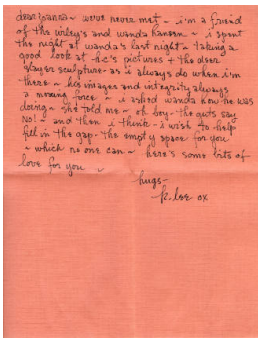 dear joanna ~ we've never met ~ i'm a friend
of the wileys and wanda hansen ~ i spent
the night at wanda's last night ~ taking a
good look at h.c.'s pictures + the deer
slayer sculpture - as i always do when i'm
there ~ his images and integrity always
a moving force ~ i asked wanda how he was
doing ~ she told me ~ oh boy - the guts say
NO! ~ and then i think ~ i wish to help
fill in the gap - the empty space for you
~ which no one can ~ here's some bits of
love for you ~
hugs -
k. lee ox